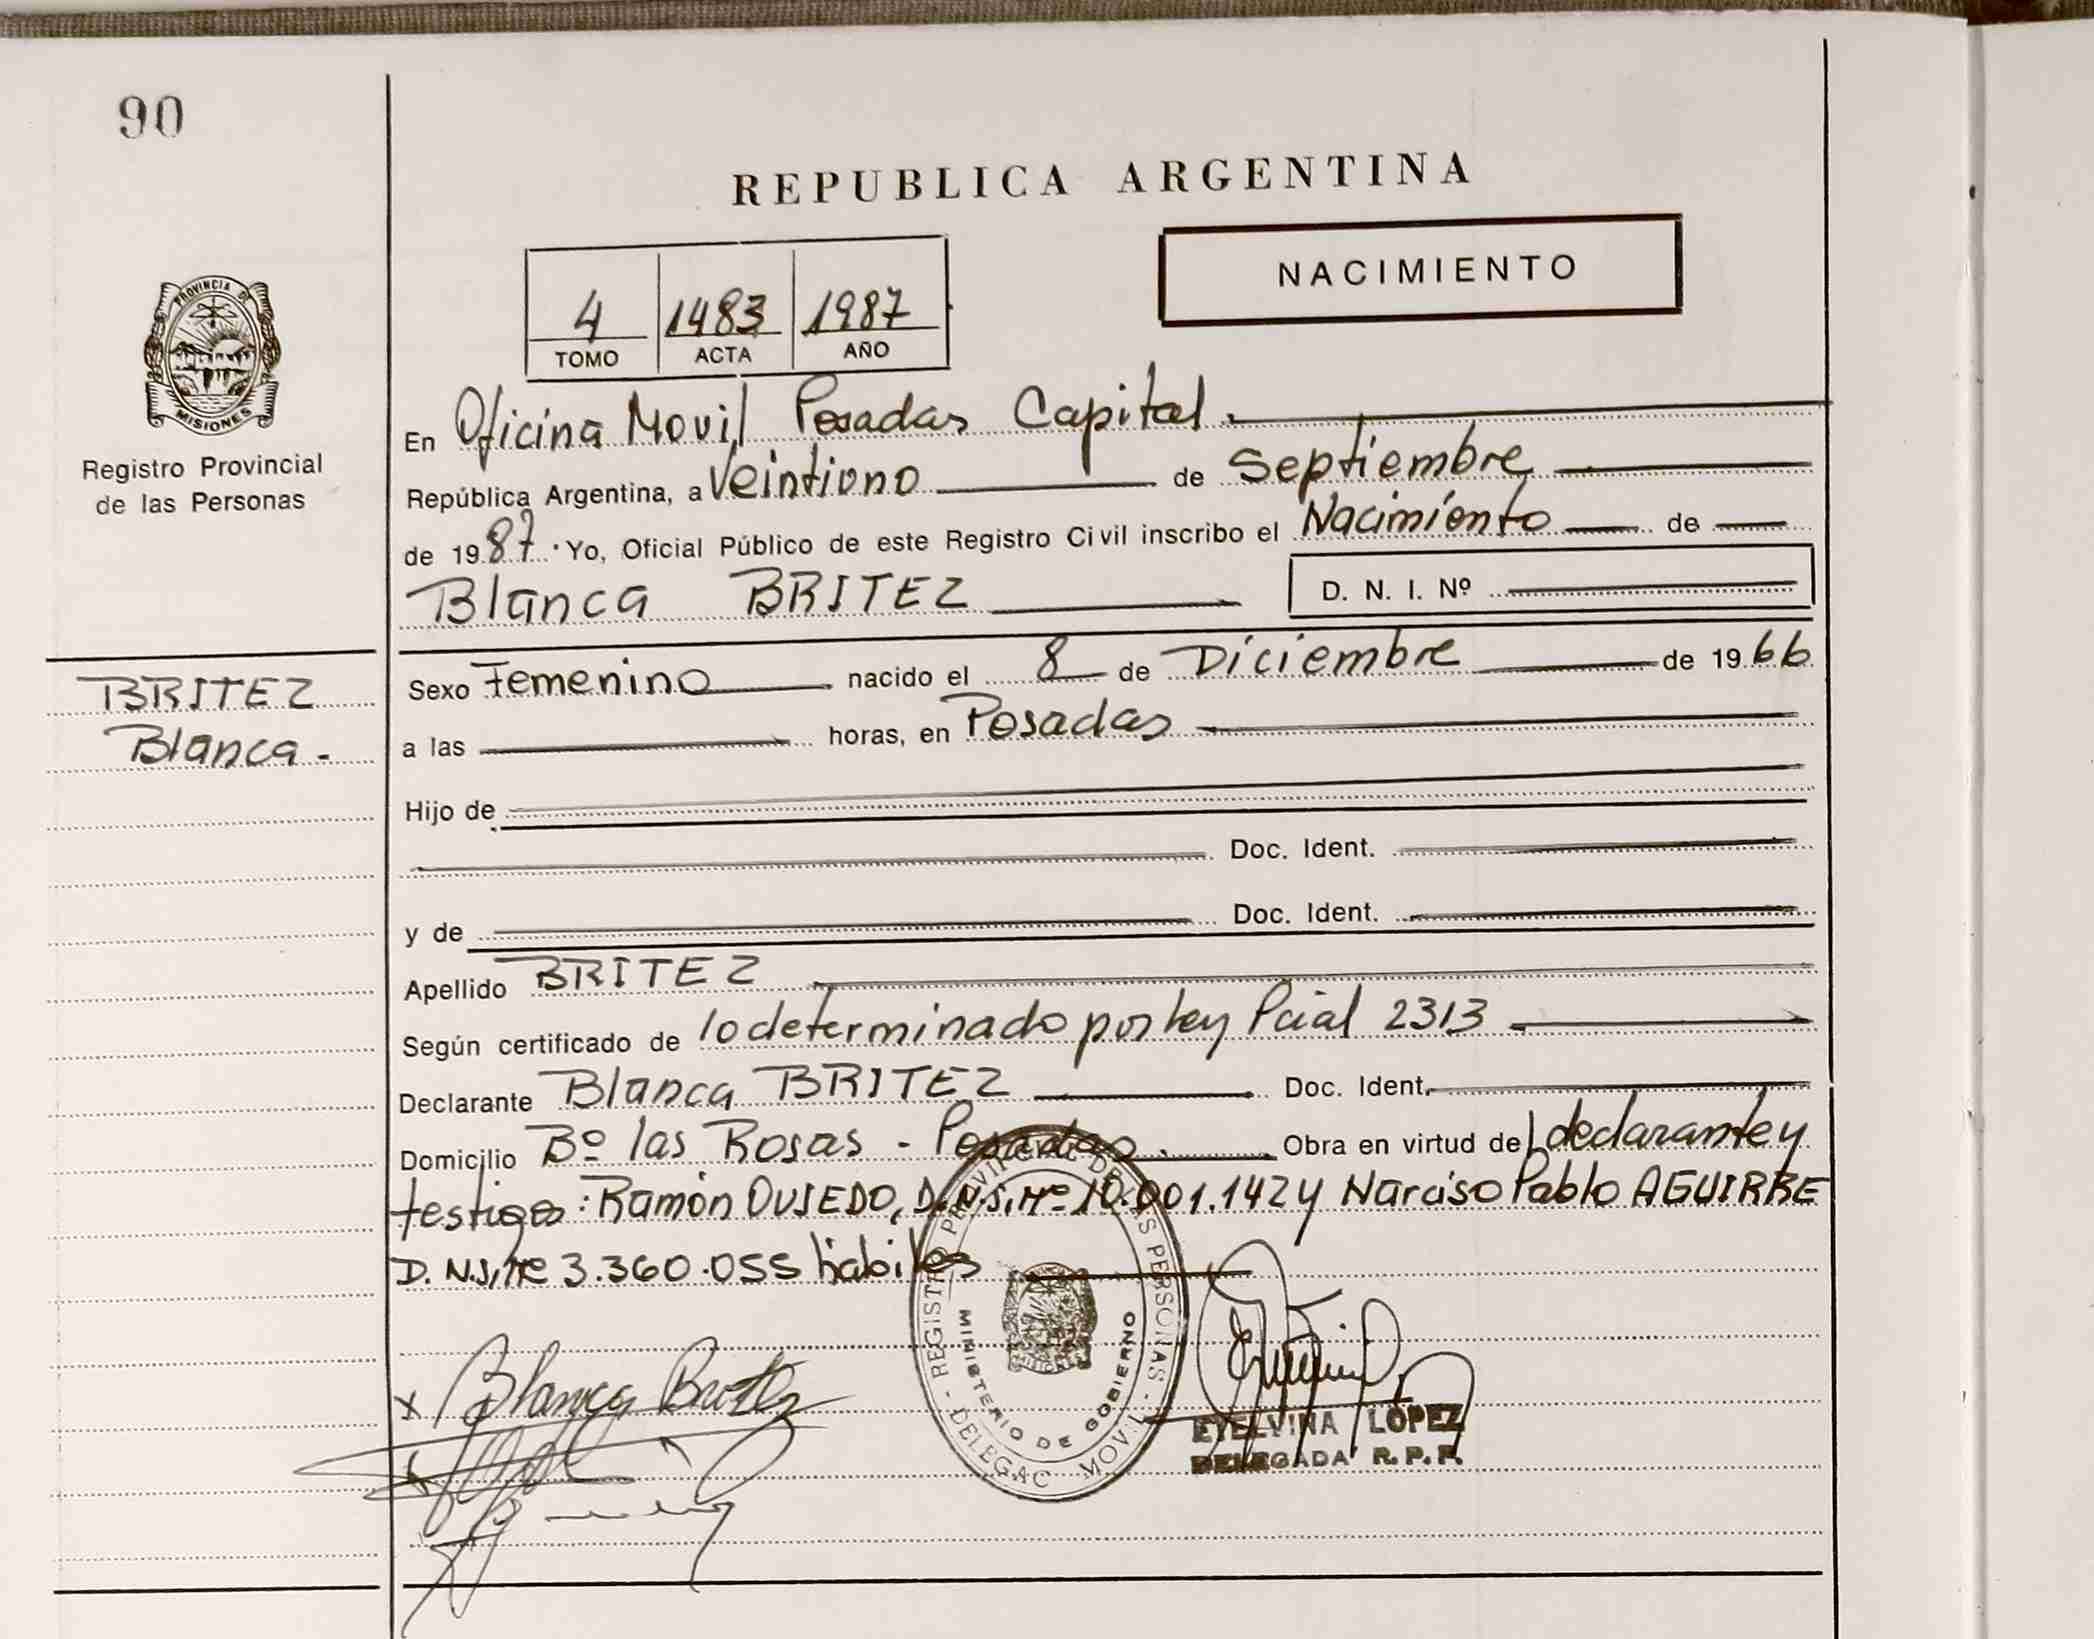 90
REPUBLICA ARGENTINA
NACIMIENTO
4 1483 1987
TOMO ACTA AÑO
PROVINCIA DE
MISIONES
Registro Provincial
de las Personas
En Oficina Movil Posadas Capital.
República Argentina, a Veintiuno de Septiembre
de 1987. Yo, Oficial Público de este Registro Civil inscribo el Nacimiento de
Blanca BRITEZ D. N. I. Nº
BRITEZ
Blanca.-
Sexo Femenino nacido el 8 de Diciembre de 1966
a las horas, en Posadas
Hijo de
Doc. Ident.
y de Doc. Ident.
Apellido BRITEZ
Según certificado de lo determinado por Ley Pcial 2313
Declarante Blanca BRITEZ Doc. Ident.
Domicilio Bº las Rosas - Posadas. Obra en virtud de declarante y
testigos: Ramón OVIEDO, D.N.I. Nº 10.001.142 y Narciso Pablo AGUIRRE
D.N.I. Nº 3.360.055 hábiles
x Blanca Britez
REGISTRO PROVINCIAL DE LAS PERSONAS - DELEGAC MOVIL -
MINISTERIO DE GOBIERNO
LOPEZ
DELEGADA R.P.P.